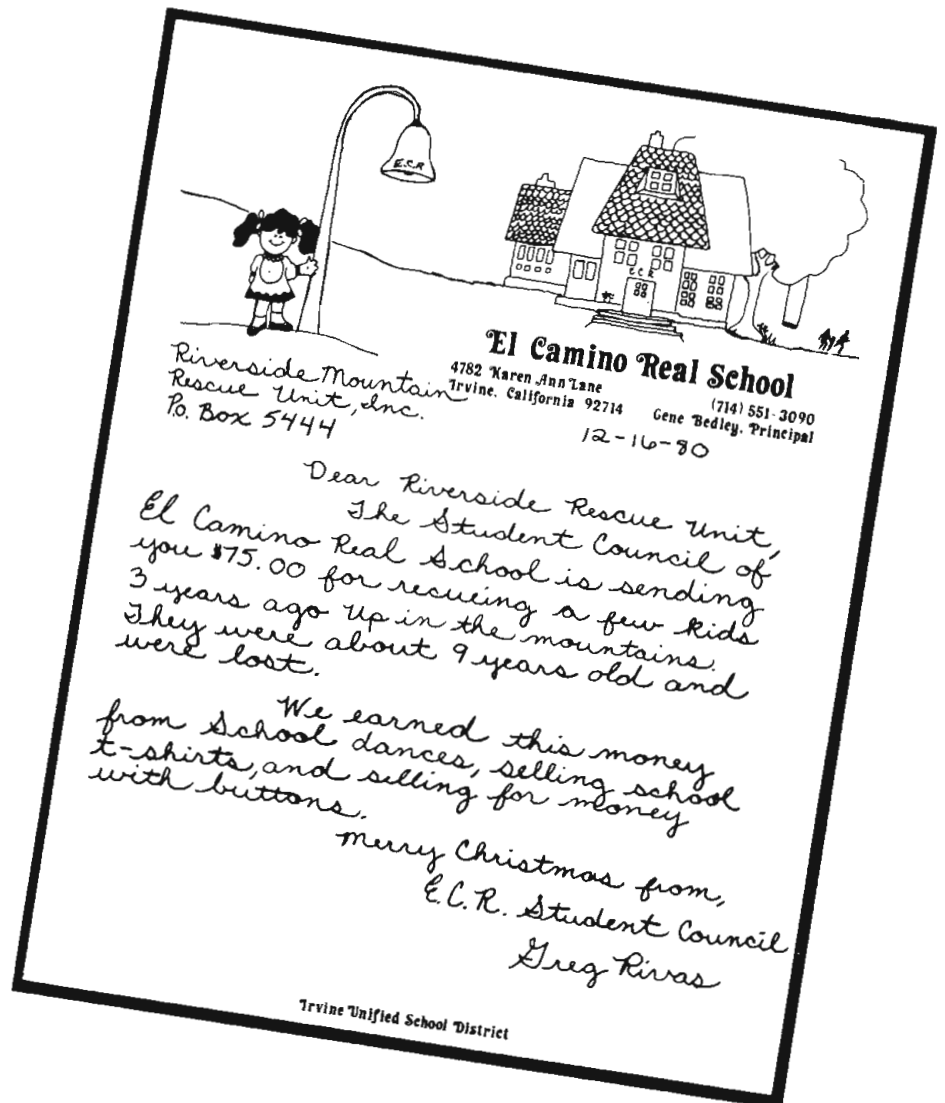 E.C.R
E.C.R
El Camino Real School
4782 Karen Ann Lane
Irvine, California 92714
(714) 551-3090
Gene Bedley, Principal
Riverside Mountain
Rescue Unit, Inc.
Po. Box 5444
12-16-80
Dear Riverside Rescue Unit,
The Student Council of
El Camino Real School is sending
you $75.00 for recueing a few kids
3 years ago up in the mountains.
They were about 9 years old and
were lost.
We earned this money
from School dances, selling school
t-shirts, and selling for money
with buttons.
Merry Christmas from,
E.C.R. Student Council
Greg Rivas
Irvine Unified School District